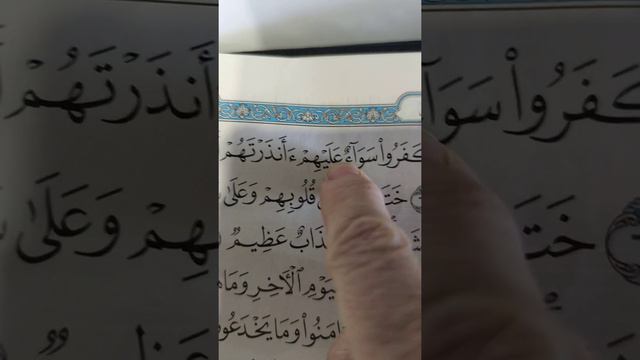 كَفَرُوا۟ سَوَآءٌ عَلَيْهِمْ ءَأَنذَرْتَهُمْ
قُلُوبِهِمْ وَعَلَىٰ
عَذَابٌ عَظِيمٌ
ٱلْأَخِرِ وَمَا
ءَامَنُوا۟ وَمَا يَخْدَعُونَ